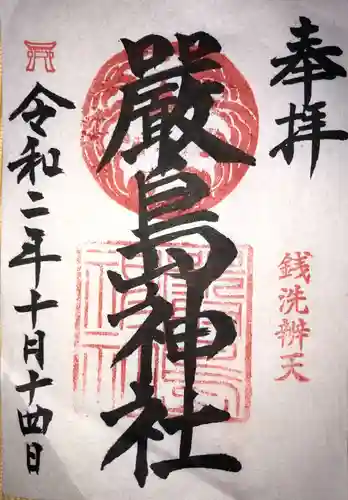 奉拝
銭洗辨天
嚴島神社
令和二年十月十四日